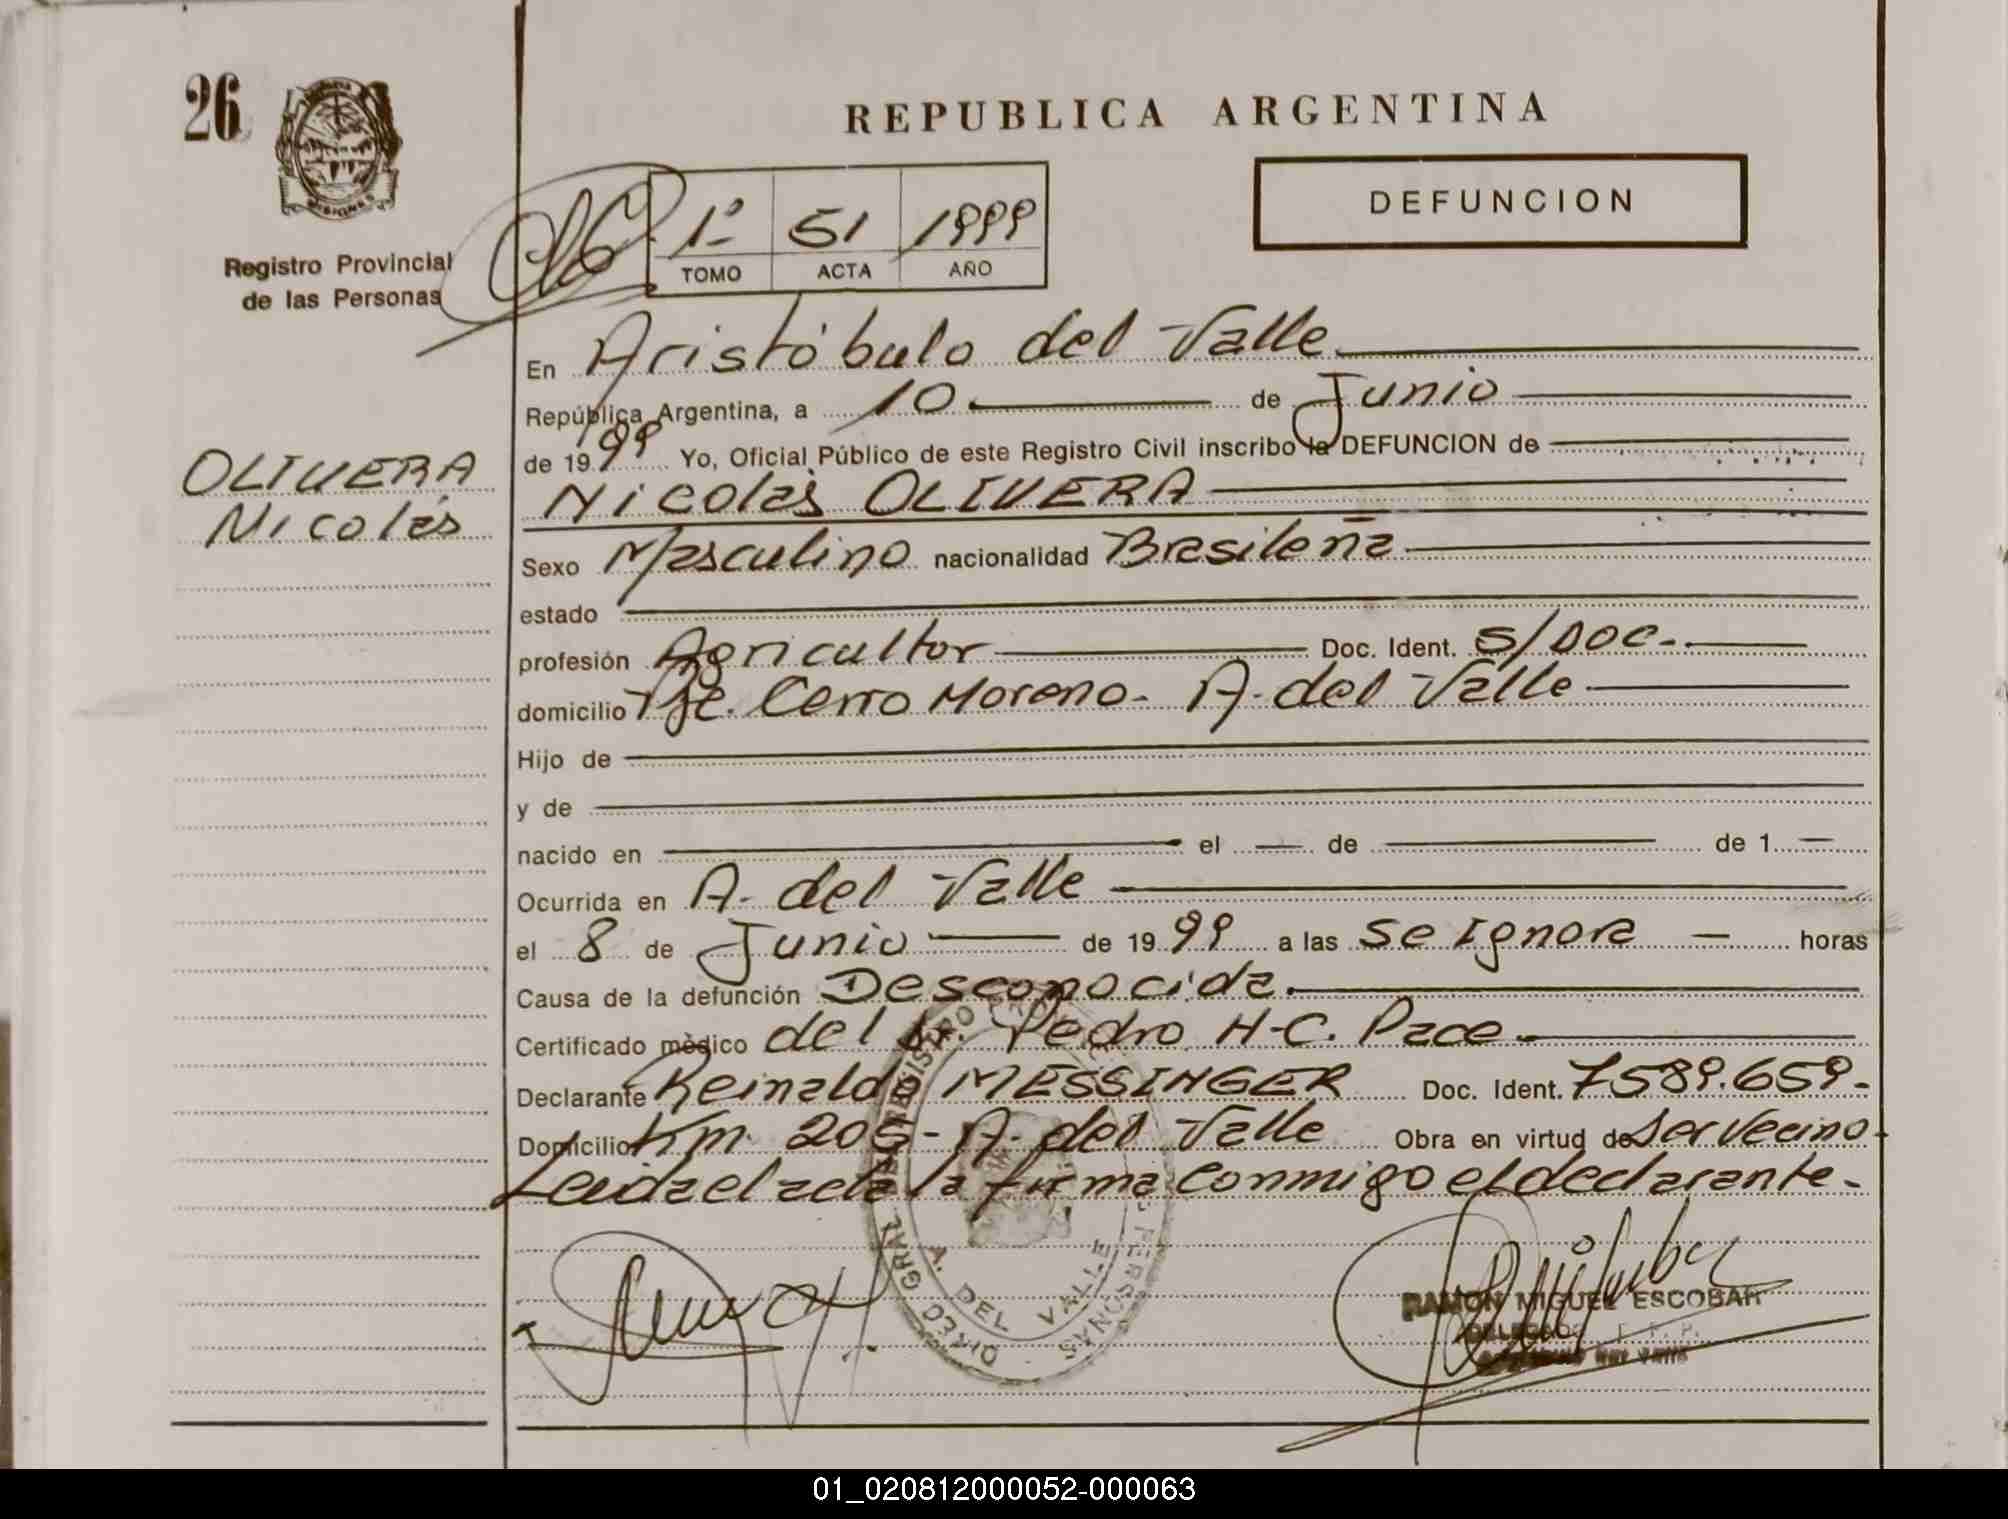 26
MISIONES
Registro Provincial
de las Personas
REPUBLICA ARGENTINA
DEFUNCION
1º 51 1999
TOMO ACTA AÑO
OLIVERA
Nicolás
En Aristóbulo del Valle
República Argentina, a 10 de Junio
de 1999 Yo, Oficial Público de este Registro Civil inscribo la DEFUNCION de
Nicolás OLIVERA
Sexo Masculino nacionalidad Brasileña
estado
profesión Agricultor Doc. Ident. S/DOC.-
domicilio Pje. Cerro Moreno- A. del Valle
Hijo de
y de
nacido en el de de 1
Ocurrida en A. del Valle
el 8 de Junio de 1999 a las se ignora horas
Causa de la defunción Desconocida.
Certificado mèdico del Dr. Pedro H.C. Pace
Declarante Reinaldo MESSINGER Doc. Ident. 7589.659-
Domicilio Km. 205- A. del Valle Obra en virtud de ser vecino-
Leida el acta la firma conmigo el declarante-
A. DEL VALLE
RAMON MIGUEL ESCOBAR
01_020812000052-000063